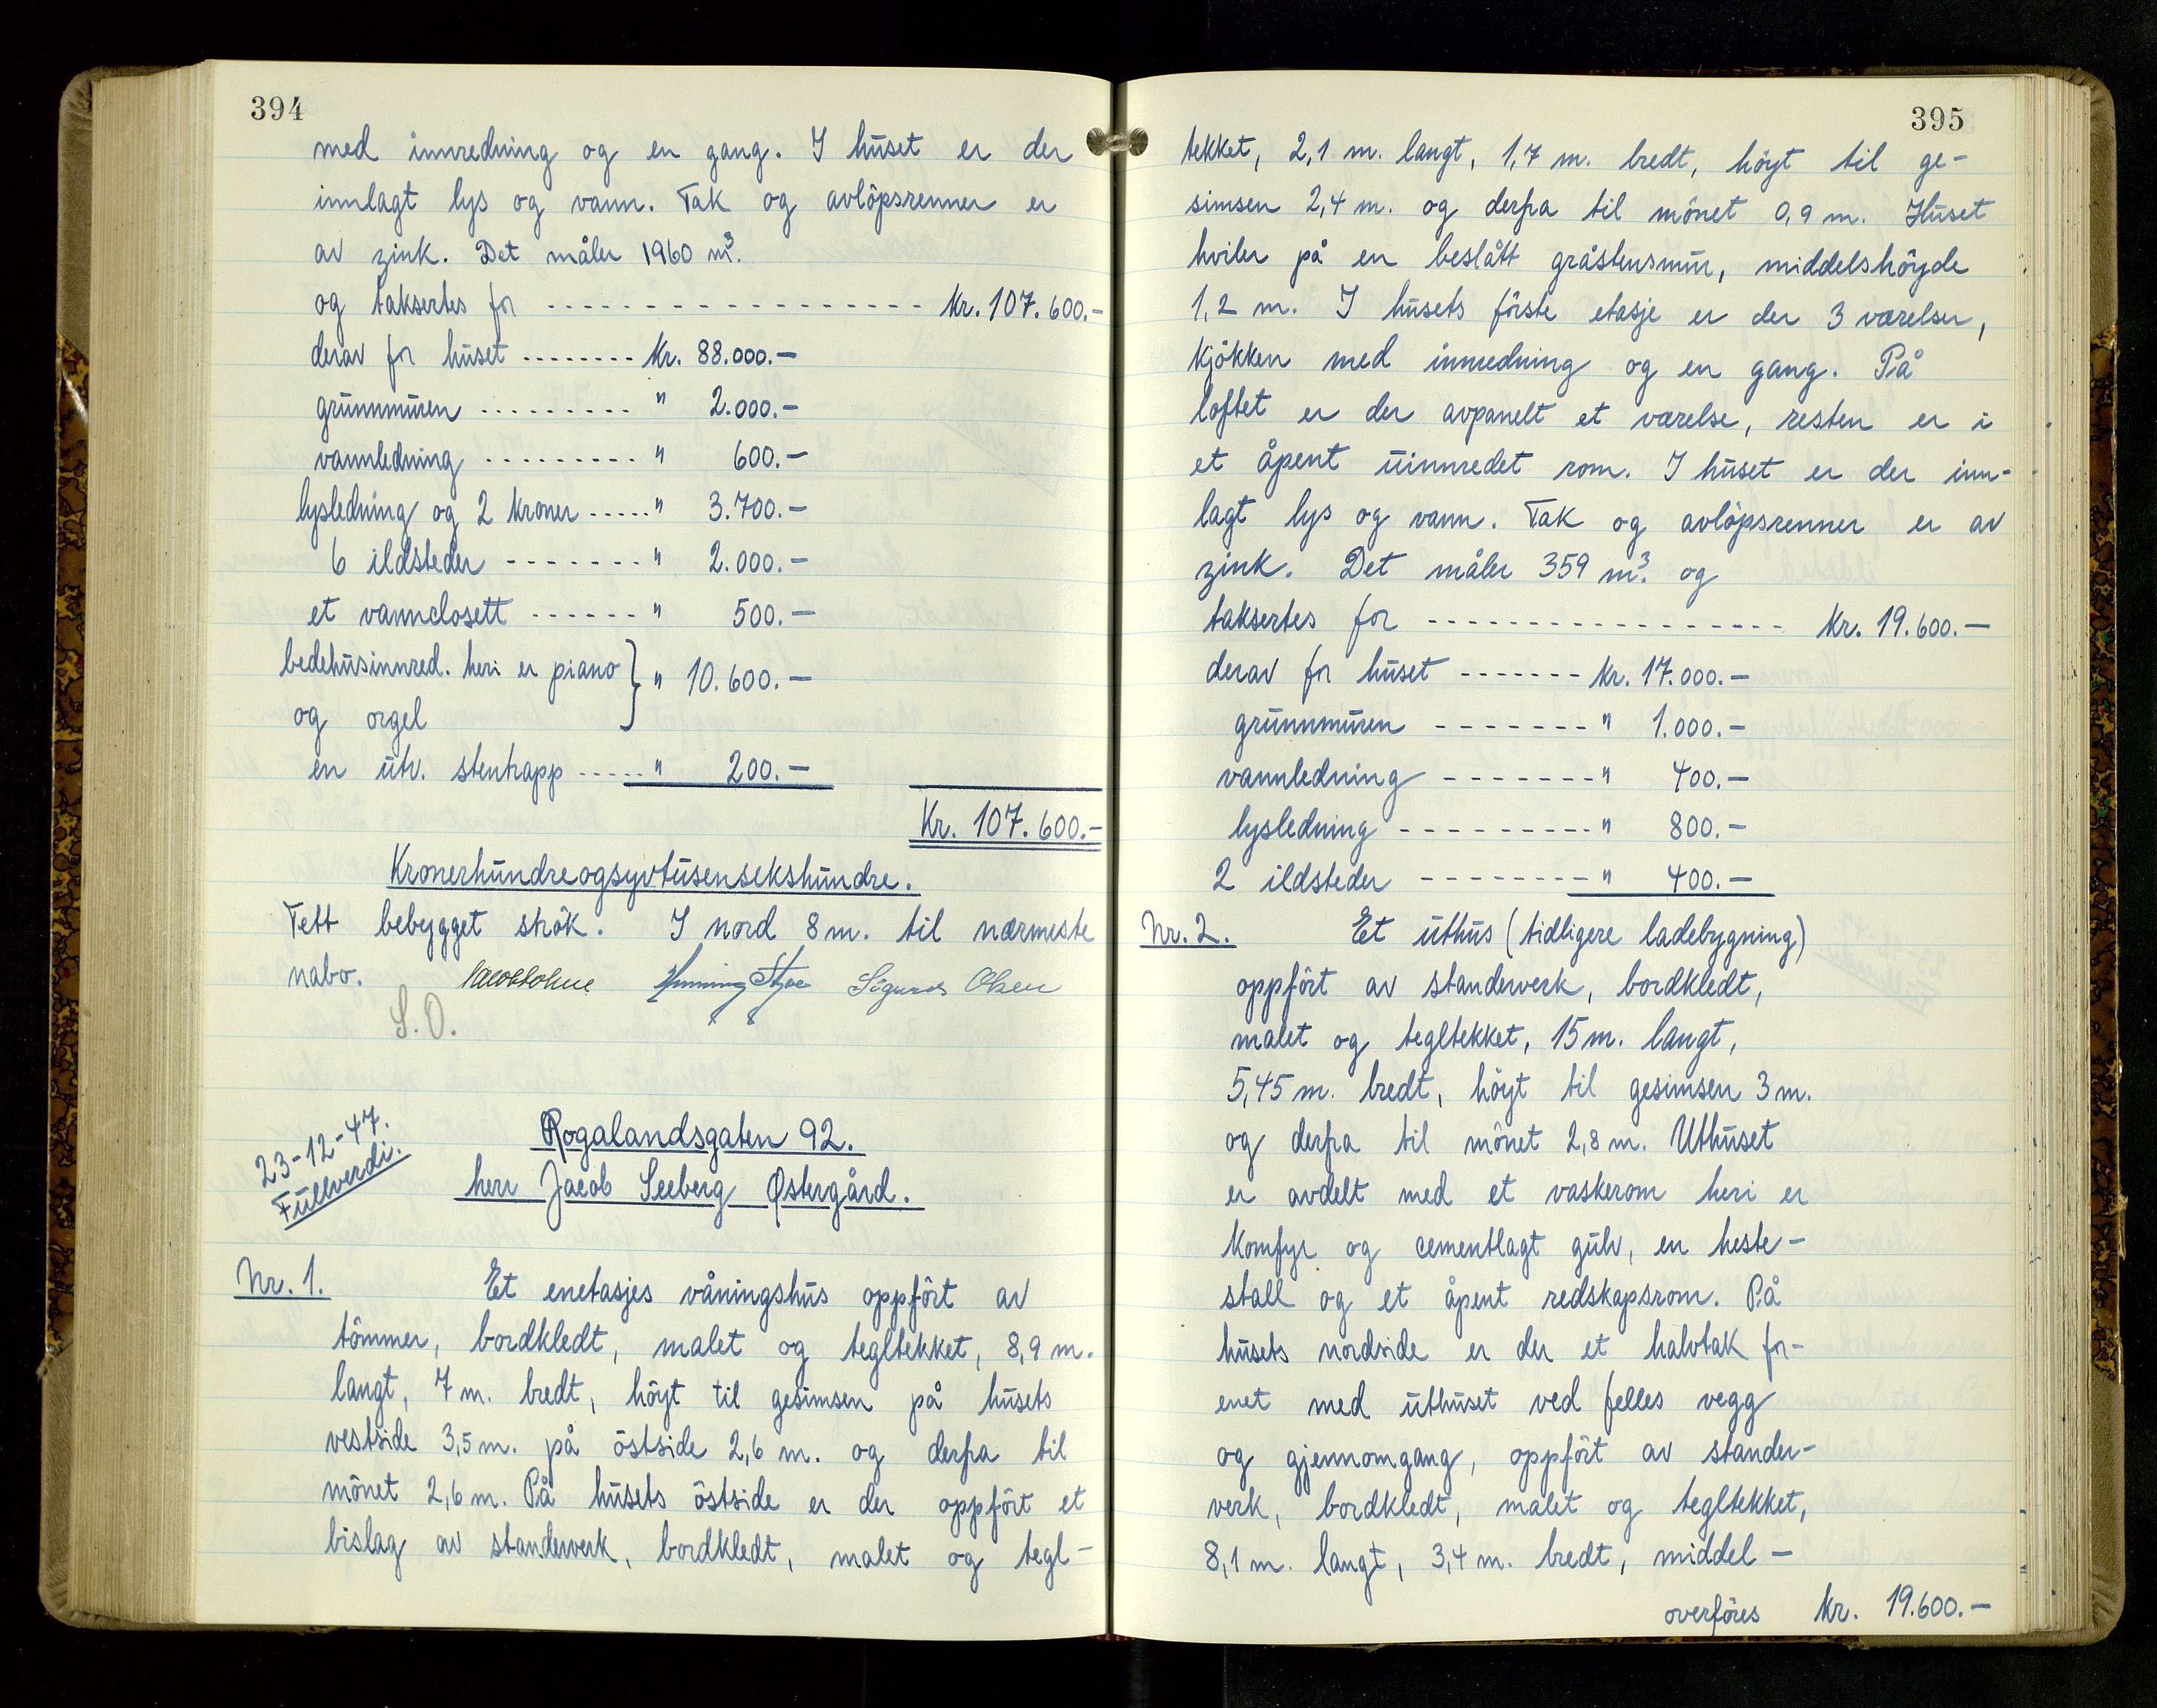 394
med innredning og en gang. I huset er der
innlagt lys og vann. Tak og avlöpsrenner er
av zink. Det måler 1960 m³.
og taksertes for ------------------ Kr. 107.600.-
derav for huset -------- Kr. 88.000.-
grunnmuren --------- " 2.000.-
vannledning --------- " 600.-
lysledning og 2 kroner ----- " 3.700.-
6 ildsteder ------- " 2.000.-
et vannclosett ------ " 500.-
bedehusinnred. heri er piano
og orgel } " 10.600.-
en utv. stentrapp ----- " 200.-
Kr. 107.600.-
Kronerhundreogsyvtusensekshundre.
Tett bebygget strök. I nord 8 m. til nærmeste
nabo. Sigurd Olsen
S.O.
23-12-47.
Fullverdi.
Rogalandsgaten 92.
herr Jacob Seeberg Østergård.
Nr. 1. Et enetasjes våningshus oppfört av
tömmer, bordkledt, malet og tegltekket, 8,9 m.
langt, 7 m. bredt, höyt til gesimsen på husets
vestside 3,5 m. på östside 2,6 m. og derfra til
mönet 2,6 m. På husets östside er der oppfört et
bislag av standerverk, bordkledt, malet og tegl-
395
tekket, 2,1 m. langt, 1,7 m. bredt, höyt til ge-
simsen 2,4 m. og derfra til mönet 0,9 m. Huset
hviler på en beslått gråstensmur, middelshöyde
1,2 m. I husets förste etasje er der 3 værelser,
kjökken med innredning og en gang. På
loftet er der avpanelt et værelse, resten er i
et åpent uinnredet rom. I huset er der inn-
lagt lys og vann. Tak og avlöpsrenner er av
zink. Det måler 359 m³. og
taksertes for ----------------- Kr. 19.600.-
derav for huset ------- Kr. 17.000.-
grunnmuren ------- " 1.000.-
vannledning ------- " 400.-
lysledning --------- " 800.-
2 ildsteder -------- " 400.-
Nr. 2. Et uthus (tidligere ladebygning)
oppfört av standerverk, bordkledt,
malet og tegltekket, 15 m. langt,
5,45 m. bredt, höyt til gesimsen 3 m.
og derfra til mönet 2,8 m. Uthuset
er avdelt med et vaskerom heri er
komfyr og cementlagt gulv, en heste-
stall og et åpent redskapsrom. På
husets nordside er der et halvtak for-
enet med uthuset ved felles vegg
og gjennomgang, oppfört av stander-
verk, bordkledt, malet og tegltekket,
8,1 m. langt, 3,4 m. bredt, middel-
overföres Kr. 19.600.-